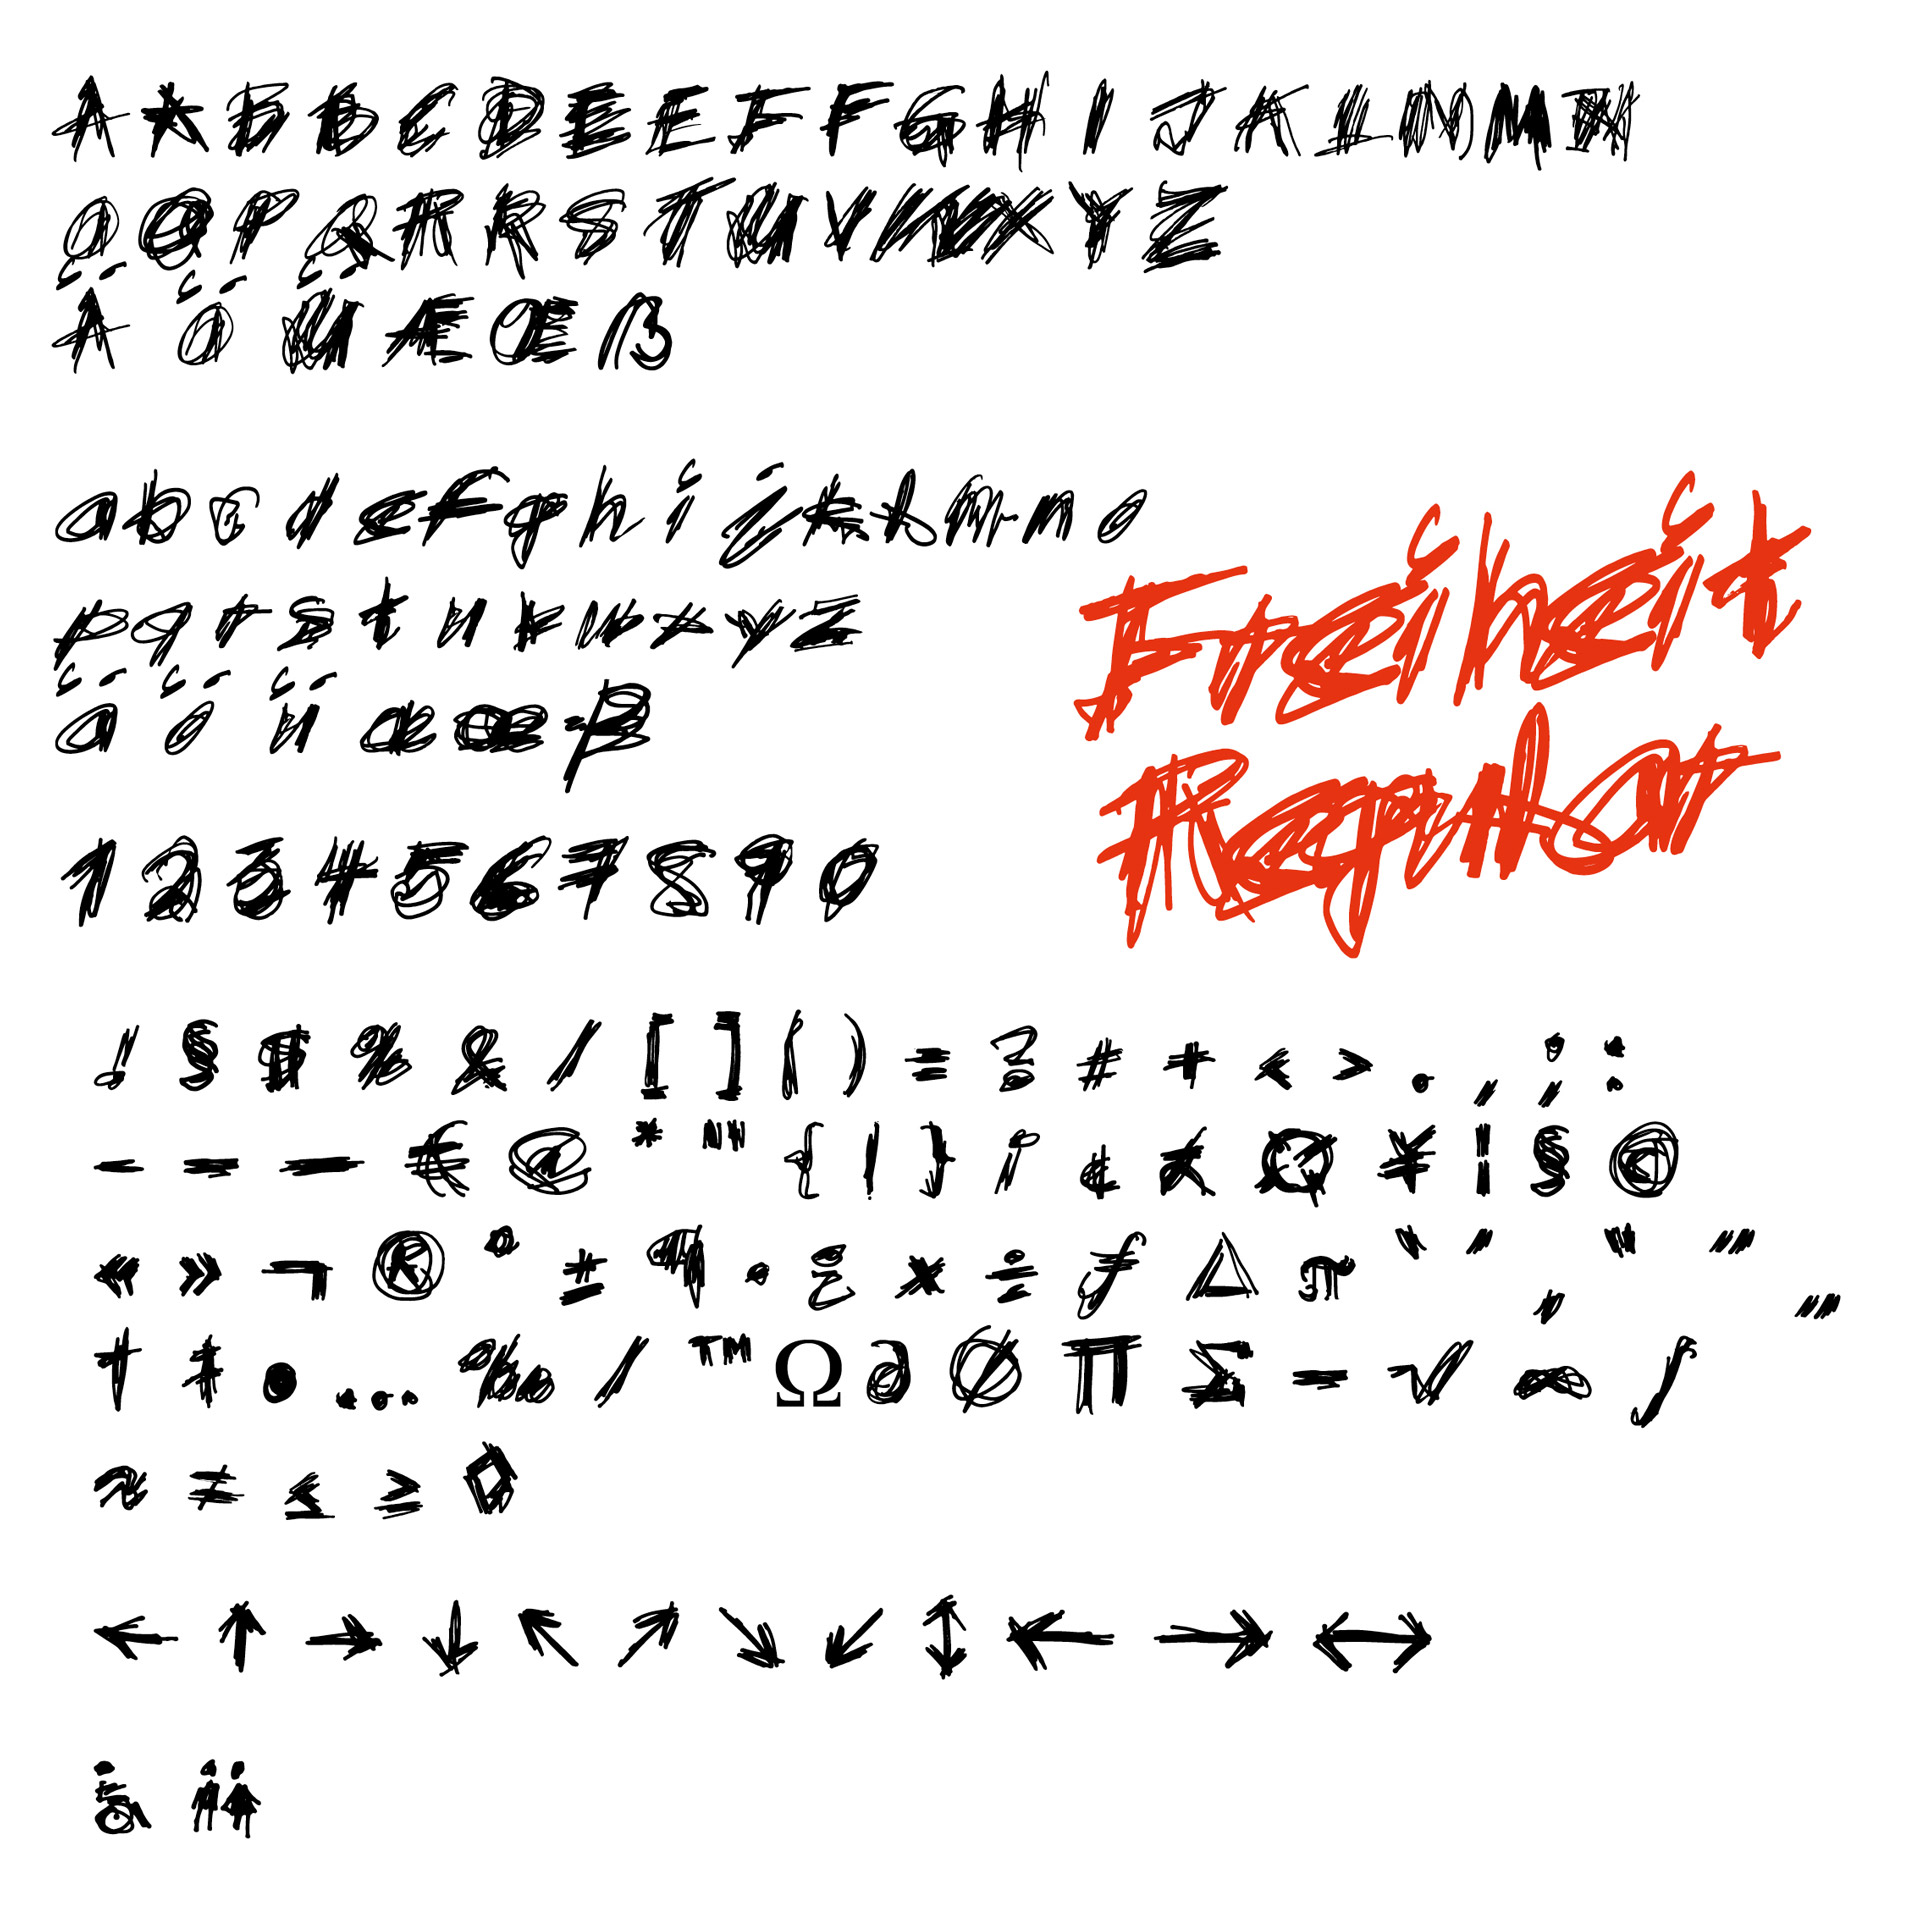 A A B B C C D E E E F F G H I J K L M M N
O O P Q R R S T U V W X Y Z
Ä Ö Ü Æ Œ ß
a b c d e f g h i j k l m n o
p q r s t u v w x y z
ä ö ü æ œ
Freiheit
Regular
1 2 3 4 5 6 7 8 9 0
! § $ % & / [ ] ( ) = ? # + < > . , ; :
€ @ * " { | } ¥ ¦ § ©
« » ¬ ® ° ± ¶ · ¿ × ÷ ƒ ∆ π ‘ ’ ‚ “ ” „
† ‡ • … ‰ ⁄ ™ Ω ∂ Ø ∏ ∑ − √ ∞ ∫
≈ ≠ ≤ ≥ ◊
← ↑ → ↓ ↖ ↗ ↘ ↙ ↕ ← → ↔